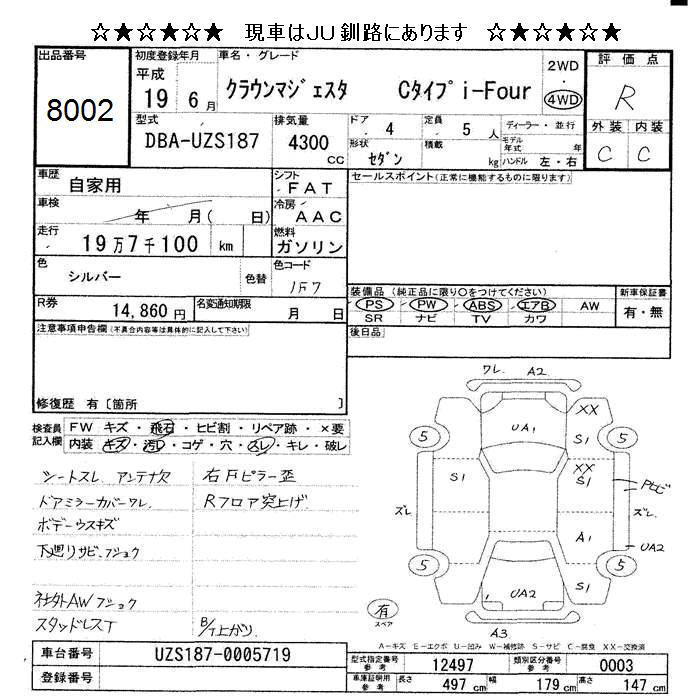 ☆★☆★☆★ 現車はJU釧路にあります ☆★☆★☆★
出品番号
8002
初度登録年月
平成
19 6月
車名・グレード
クラウンマジェスタ Cタイプ i-Four
2WD
・
4WD
評価点
R
外装 内装
C C
型式
DBA-UZS187
排気量
4300
CC
ドア
4
形状
セダン
定員
5人
積載
kg
ディーラー・並行
モデル年式 年
ハンドル 左・右
車歴
自家用
車検
年 月( 日)
走行
19万7千100 km
色
シルバー
色替
R券
14,860円
名変通知期限
月 日
シフト
FAT
冷房
AAC
燃料
ガソリン
色コード
1F7
セールスポイント(正常に機能するものに限ります)
装備品(純正品に限り○をつけてください)
PS PW ABS エアB AW
SR ナビ TV カワ
新車保証書
有・無
後日品
注意事項申告欄(不具合内容等は具体的に記入して下さい)
修復歴 有〔箇所 〕
検査員記入欄
FW キズ・飛石・ヒビ割・リペア跡・×要
内装 キズ・汚レ・コゲ・穴・スレ・キレ・破レ
シートスレ アンテナ欠
ドアミラーカバーワレ
ボデーウスキズ
下廻リサビ、フショク
社外AWフショク
スタッドレスT
右Fピラー歪
Rフロア突上げ
B/T上がり
ワレ A2
XX
UA1
5 S1 5
S1 XX
S1
Pヒビ
ズレ ズレ
A1 UA2
5 5
UA2 S1
A3
有
スペア
A-キズ E-エクボ U-凹み W-補修跡 S-サビ C-腐食 XX-交換済
車台番号
UZS187-0005719
登録番号
型式指定番号
参考
12497
類別区分番号
参考
0003
車庫証明用
参考
長さ
497cm
幅
179cm
高さ
147cm